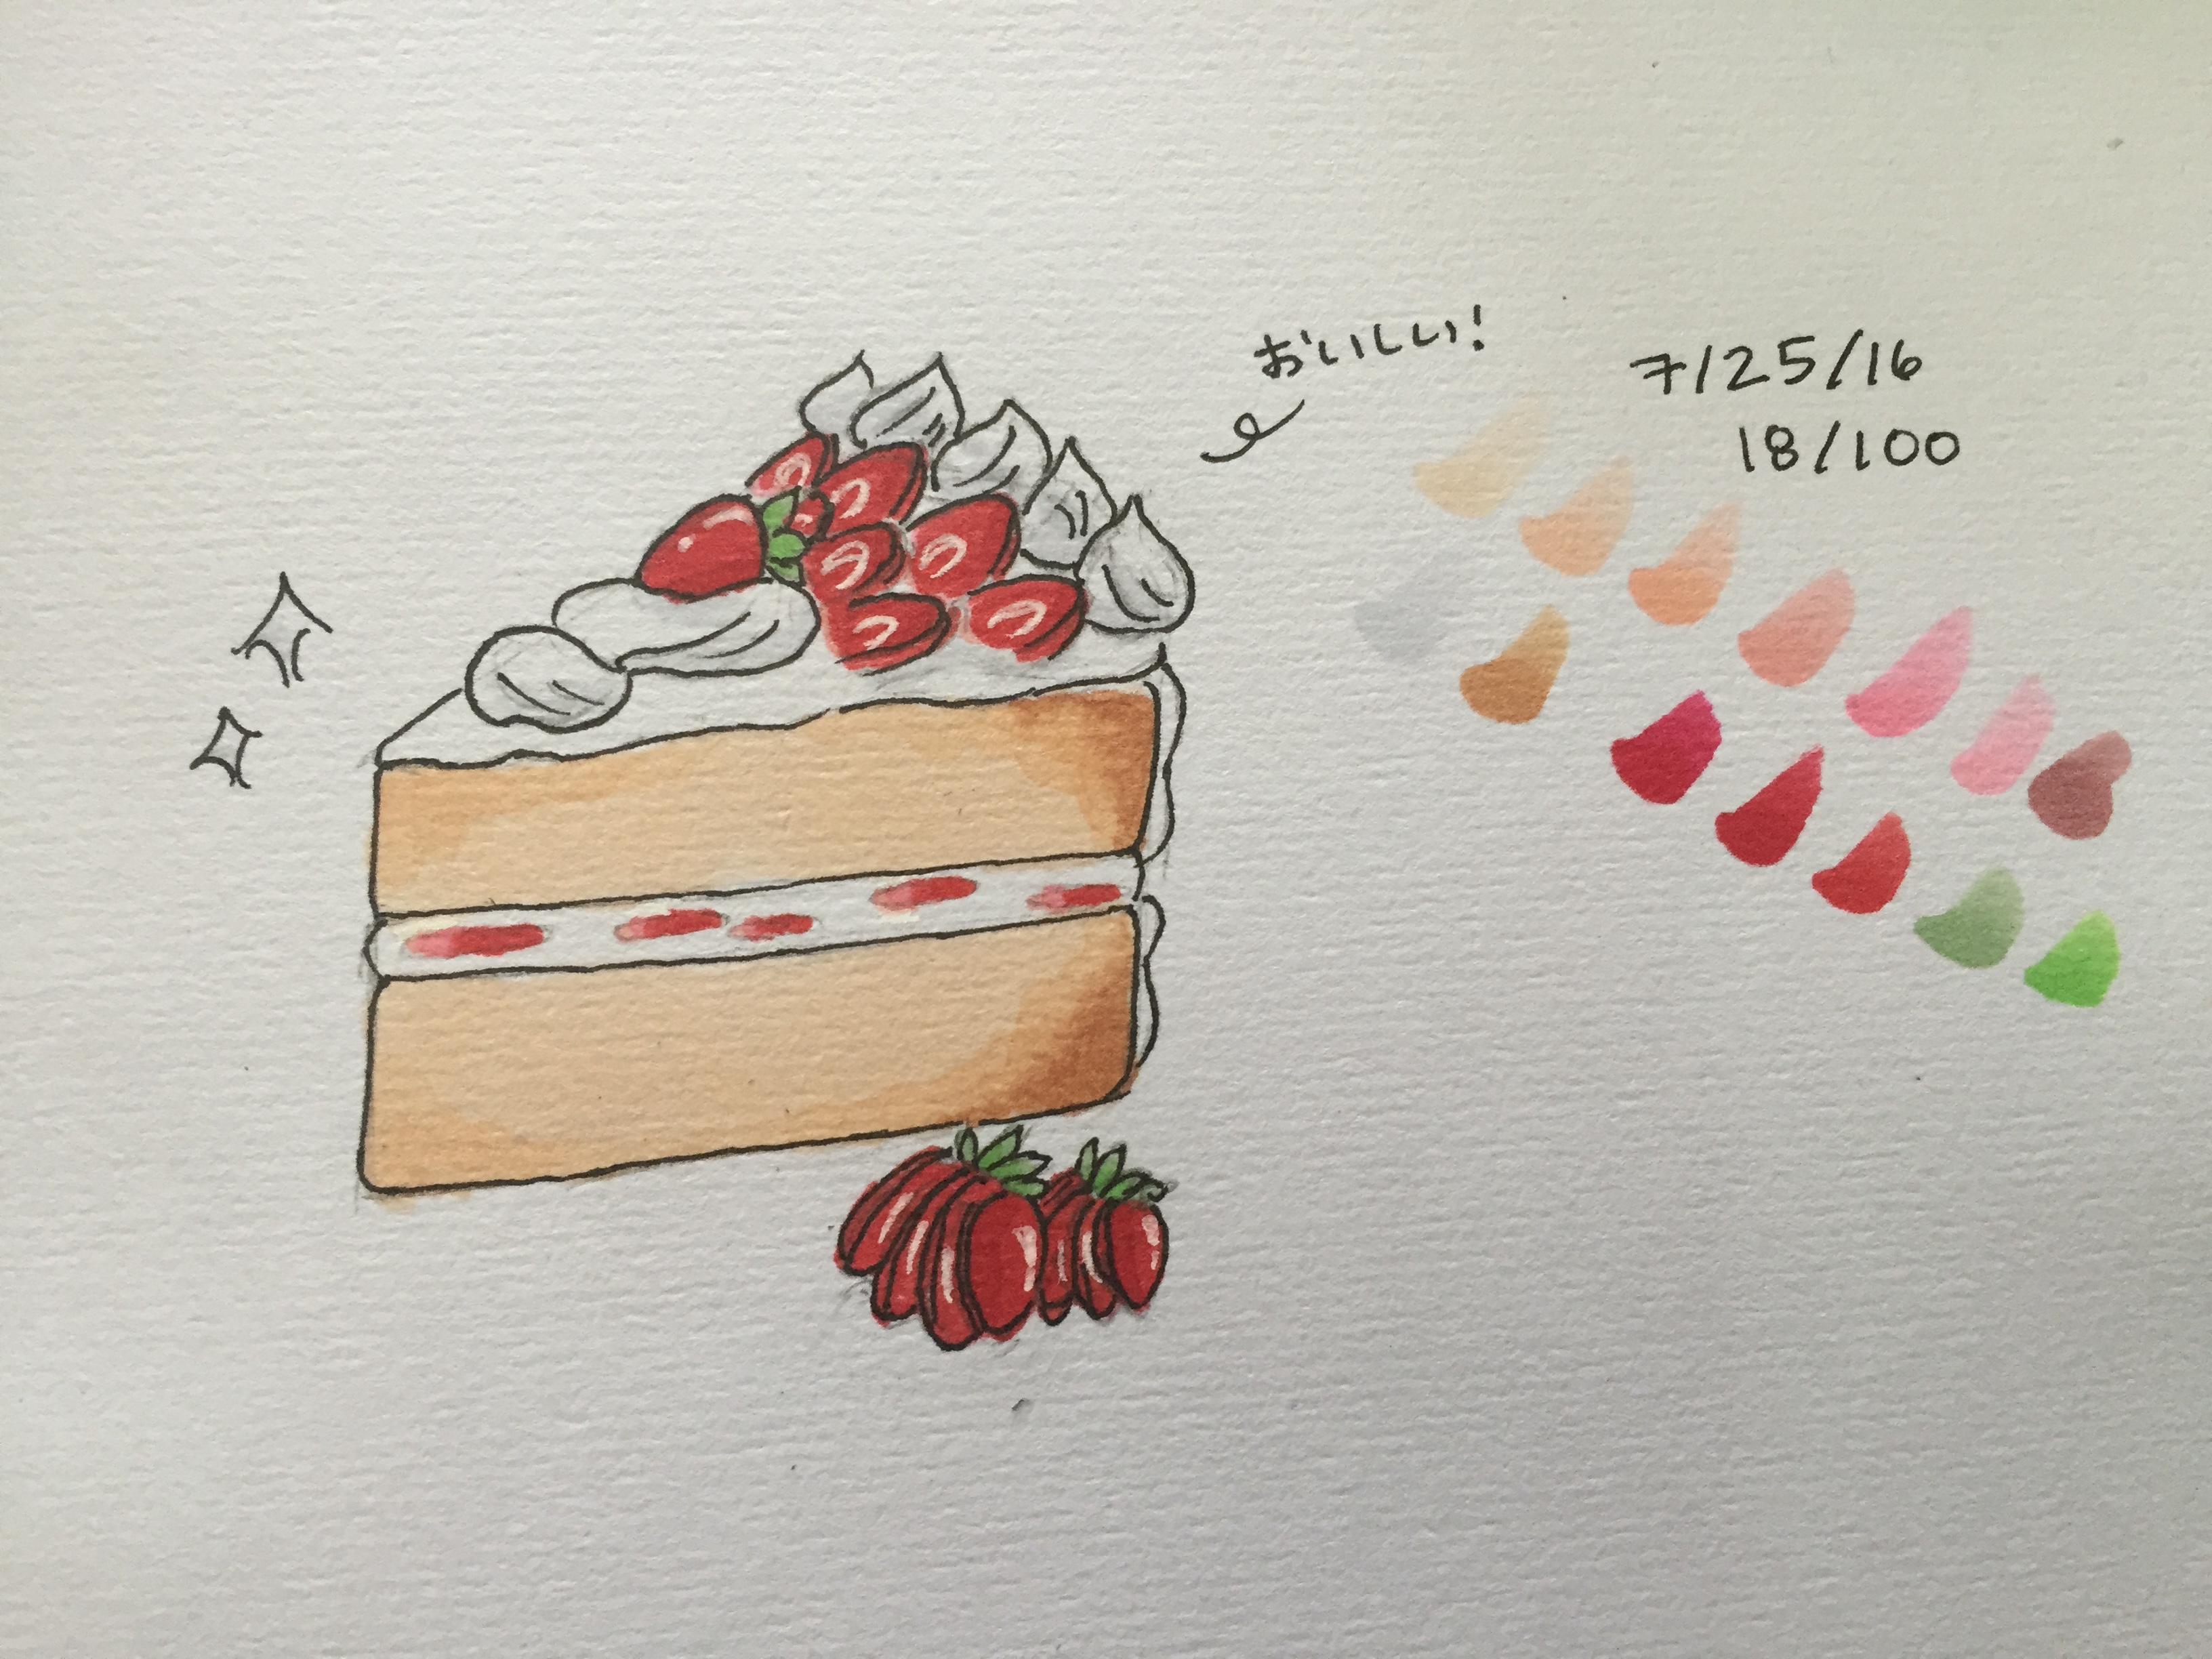 おいしい!!
7/25/16
18/100